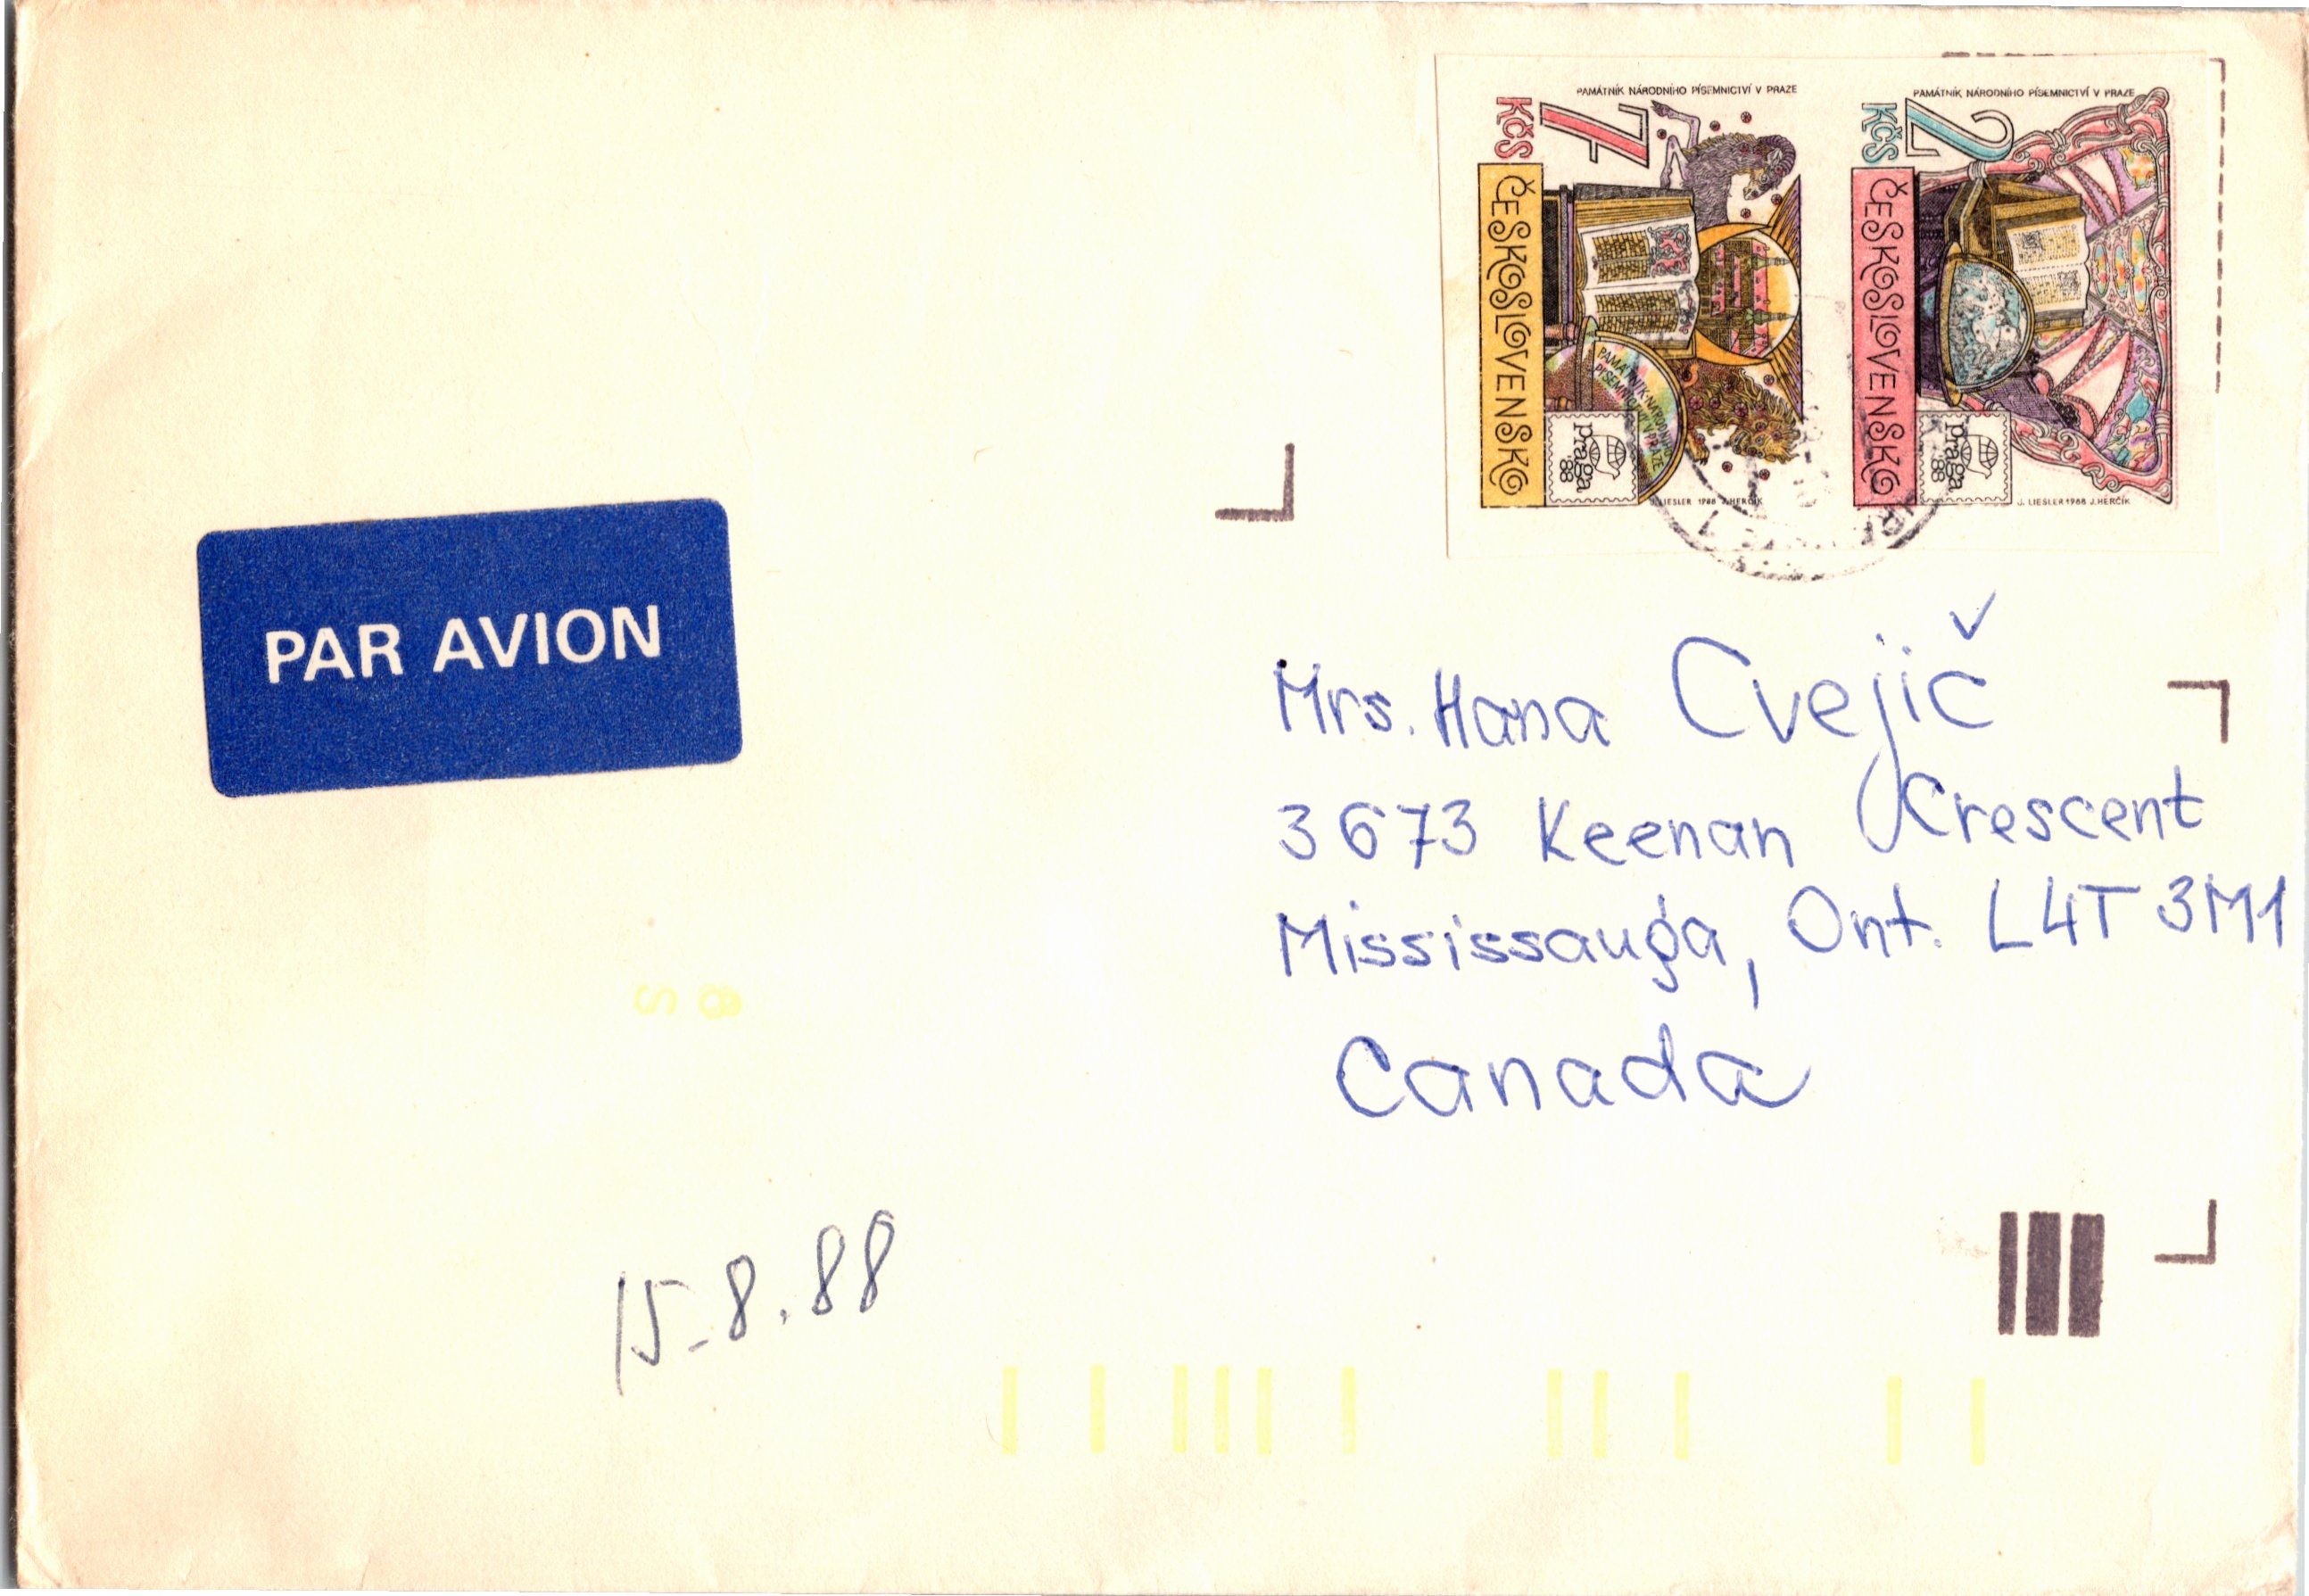 PAMÁTNÍK NÁRODNÍHO PÍSEMNICTVÍ V PRAZE
7 KČS
ČESKOSLOVENSKO
PAMÁTNÍK NÁRODNÍHO
PÍSEMNICTVÍ V PRAZE
praga
'88
J. LIESLER 1988 J. HERČÍK
PAMÁTNÍK NÁRODNÍHO PÍSEMNICTVÍ V PRAZE
2 KČS
ČESKOSLOVENSKO
praga
'88
J. LIESLER 1988 J. HERČÍK
PAR AVION
Mrs. Hana Cvejič
3673 Keenan Crescent
Mississauga, Ont. L4T 3M1
Canada
15-8.88